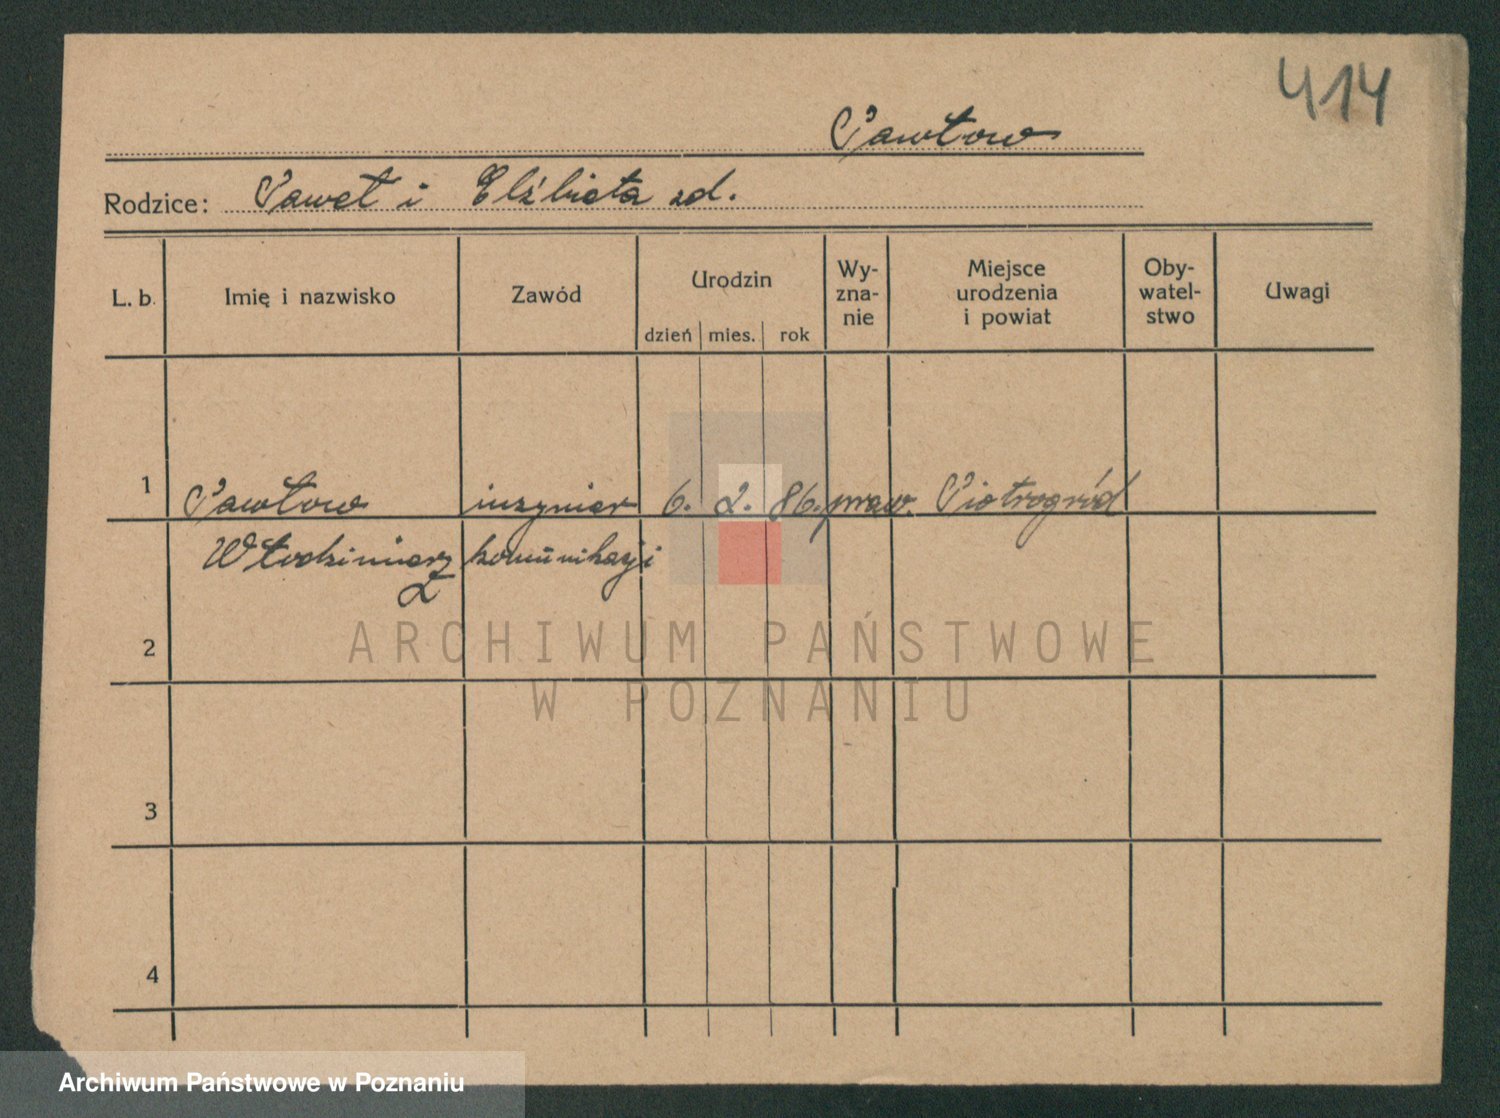 414
Pawłow
Rodzice: Paweł i Elżbieta zd.
L. b. Imię i nazwisko Zawód Urodzin dzień mies. rok Wy-
zna-
nie Miejsce
urodzenia
i powiat Oby-
watel-
stwo Uwagi
1 Pawłow inżynier 6. 2. 86. praw. Piotrogród
Włodzimierz komunikacji
2
3
4
ARCHIWUM PAŃSTWOWE
W POZNANIU
Archiwum Państwowe w Poznaniu